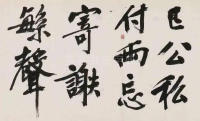 已公私
付兩忘
寄謝
繁聲